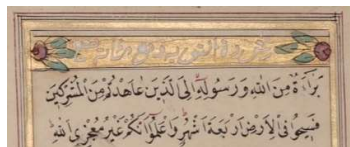 بَرَاءَةٌ مِنَ اللّٰهِ وَرَسُولِهِ اِلَى الَّذِينَ عَاهَدْتُمْ مِنَ الْمُشْرِكِينَ
فَسِيحُوا فِي الْاَرْضِ اَرْبَعَةَ اَشْهُرٍ وَاعْلَمُوا اَنَّكُمْ غَيْرُ مُعْجِزِي اللّٰهِ